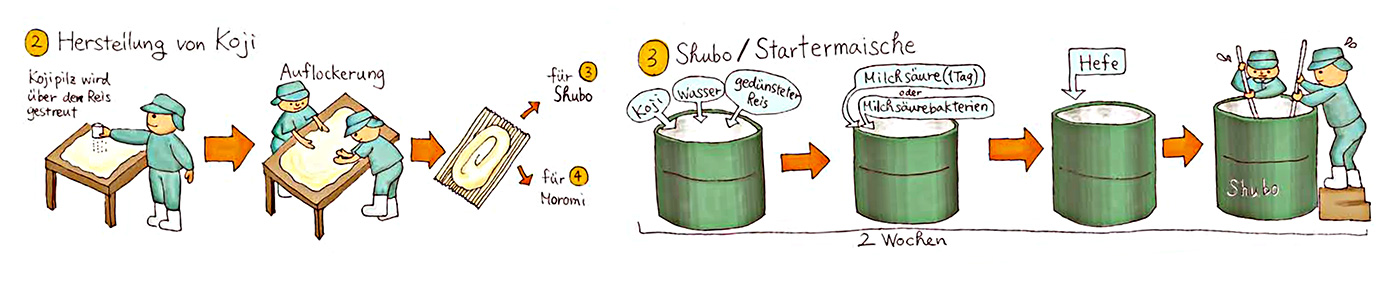 2 Herstellung von Koji
Kojipilz wird
über den Reis
gestreut
Auflockerung
für 3
Shubo
für 4
Moromi
3 Shubo/Startermaische
Koji
Wasser
gedünsteter
Reis
Milchsäure (1Tag)
oder
Milchsäurebakterien
Hefe
Shubo
2 Wochen